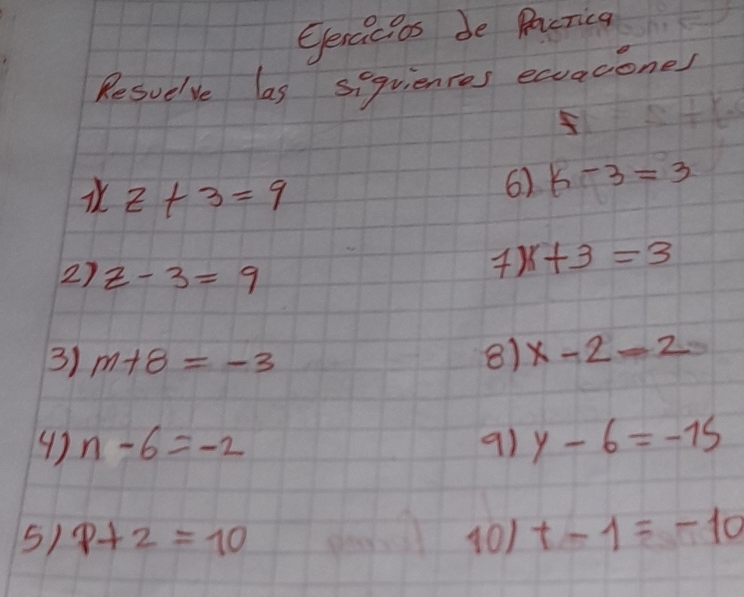 Ejercicios de Practica
Resuelve las siguientes ecuaciones
1) z + 3 = 9
2) z - 3 = 9
3) m + 8 = -3
4) n - 6 = -2
5) p + 2 = 10
6) k - 3 = 3
7) x + 3 = 3
8) x - 2 = 2
9) y - 6 = -15
10) t - 1 = -10